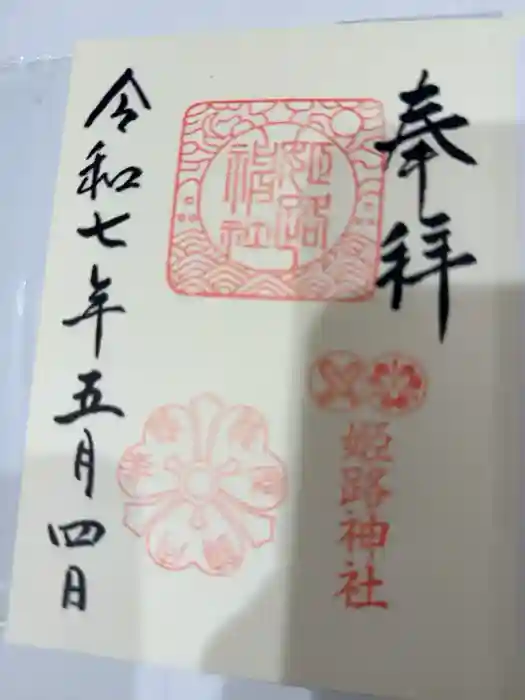 奉拝
姫路神社
姫路神社
令和七年五月四日